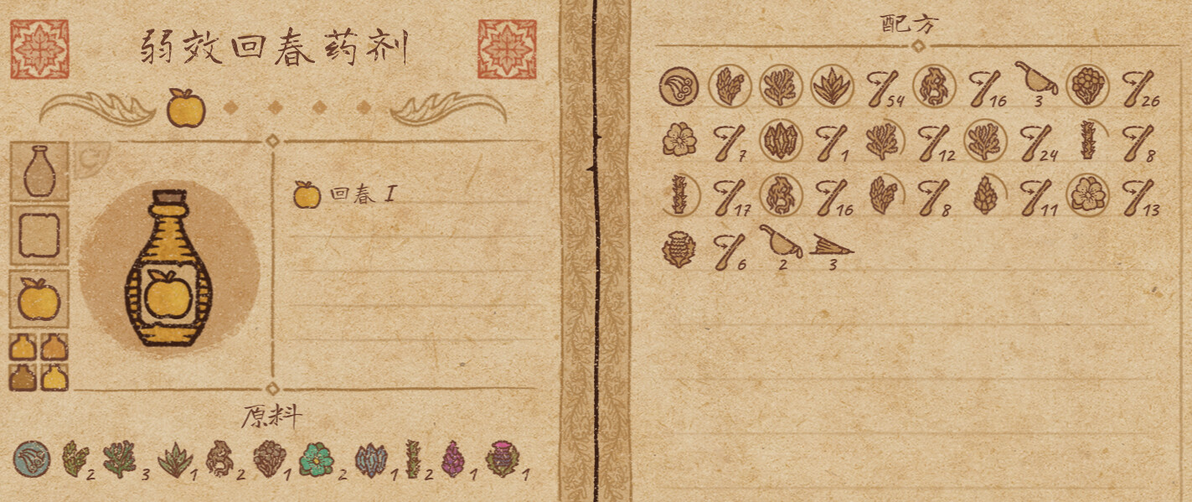 弱效回春药剂
回春 I
原料
2 3 1 2 1 2 1 2 1 1
配方
54 16 3 26
7 1 12 24 8
17 16 8 11 13
6 2 3